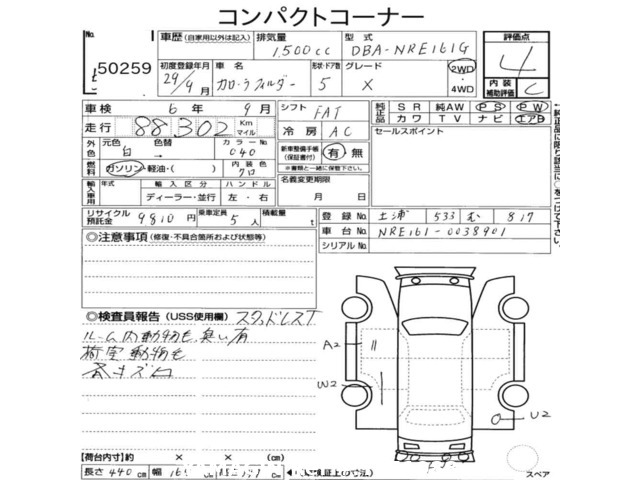 コンパクトコーナー
No.
50259
車歴 (自家用以外は記入) 排気量 型式 評価点
1,500cc DBA-NRE161G 4
初度登録年月 車名 形状・ドア数 グレード 2WD 内装
29/9 カローラフィルダー 5 X ・4WD 補助評価 C
車検 6年 9月 シフト FAT 純正品 SR 純AW PS PW
走行 88,302 Km マイル 冷房 AC カワ TV ナビ エアB
外色 元色 色替 カラーNo. 新車整備手帳(保証書付) 有・無 セールスポイント
白→ 040 ※書類と一緒に保管下さい。
燃料 ガソリン・軽油・( ) 内装色 クロ 名義変更期限
輸入車用 年式 輸入区分 ハンドル 月 日
ディーラー・並行 左・右
リサイクル預託金 9810円 乗車定員 5人 積載量 t 登録No. 土浦 533 む 817
◎注意事項 (修復・不具合箇所および状態等) 車台No. NRE161-0038901
シリアルNo.
◎検査員報告 (USS使用欄) スタッドレスT
ルーム内動物毛、臭い有
荷室動物毛
各キズ凹
A2
W2
U2
【荷台内寸】 × × (cm)
長さ 440cm 幅 16
スペア